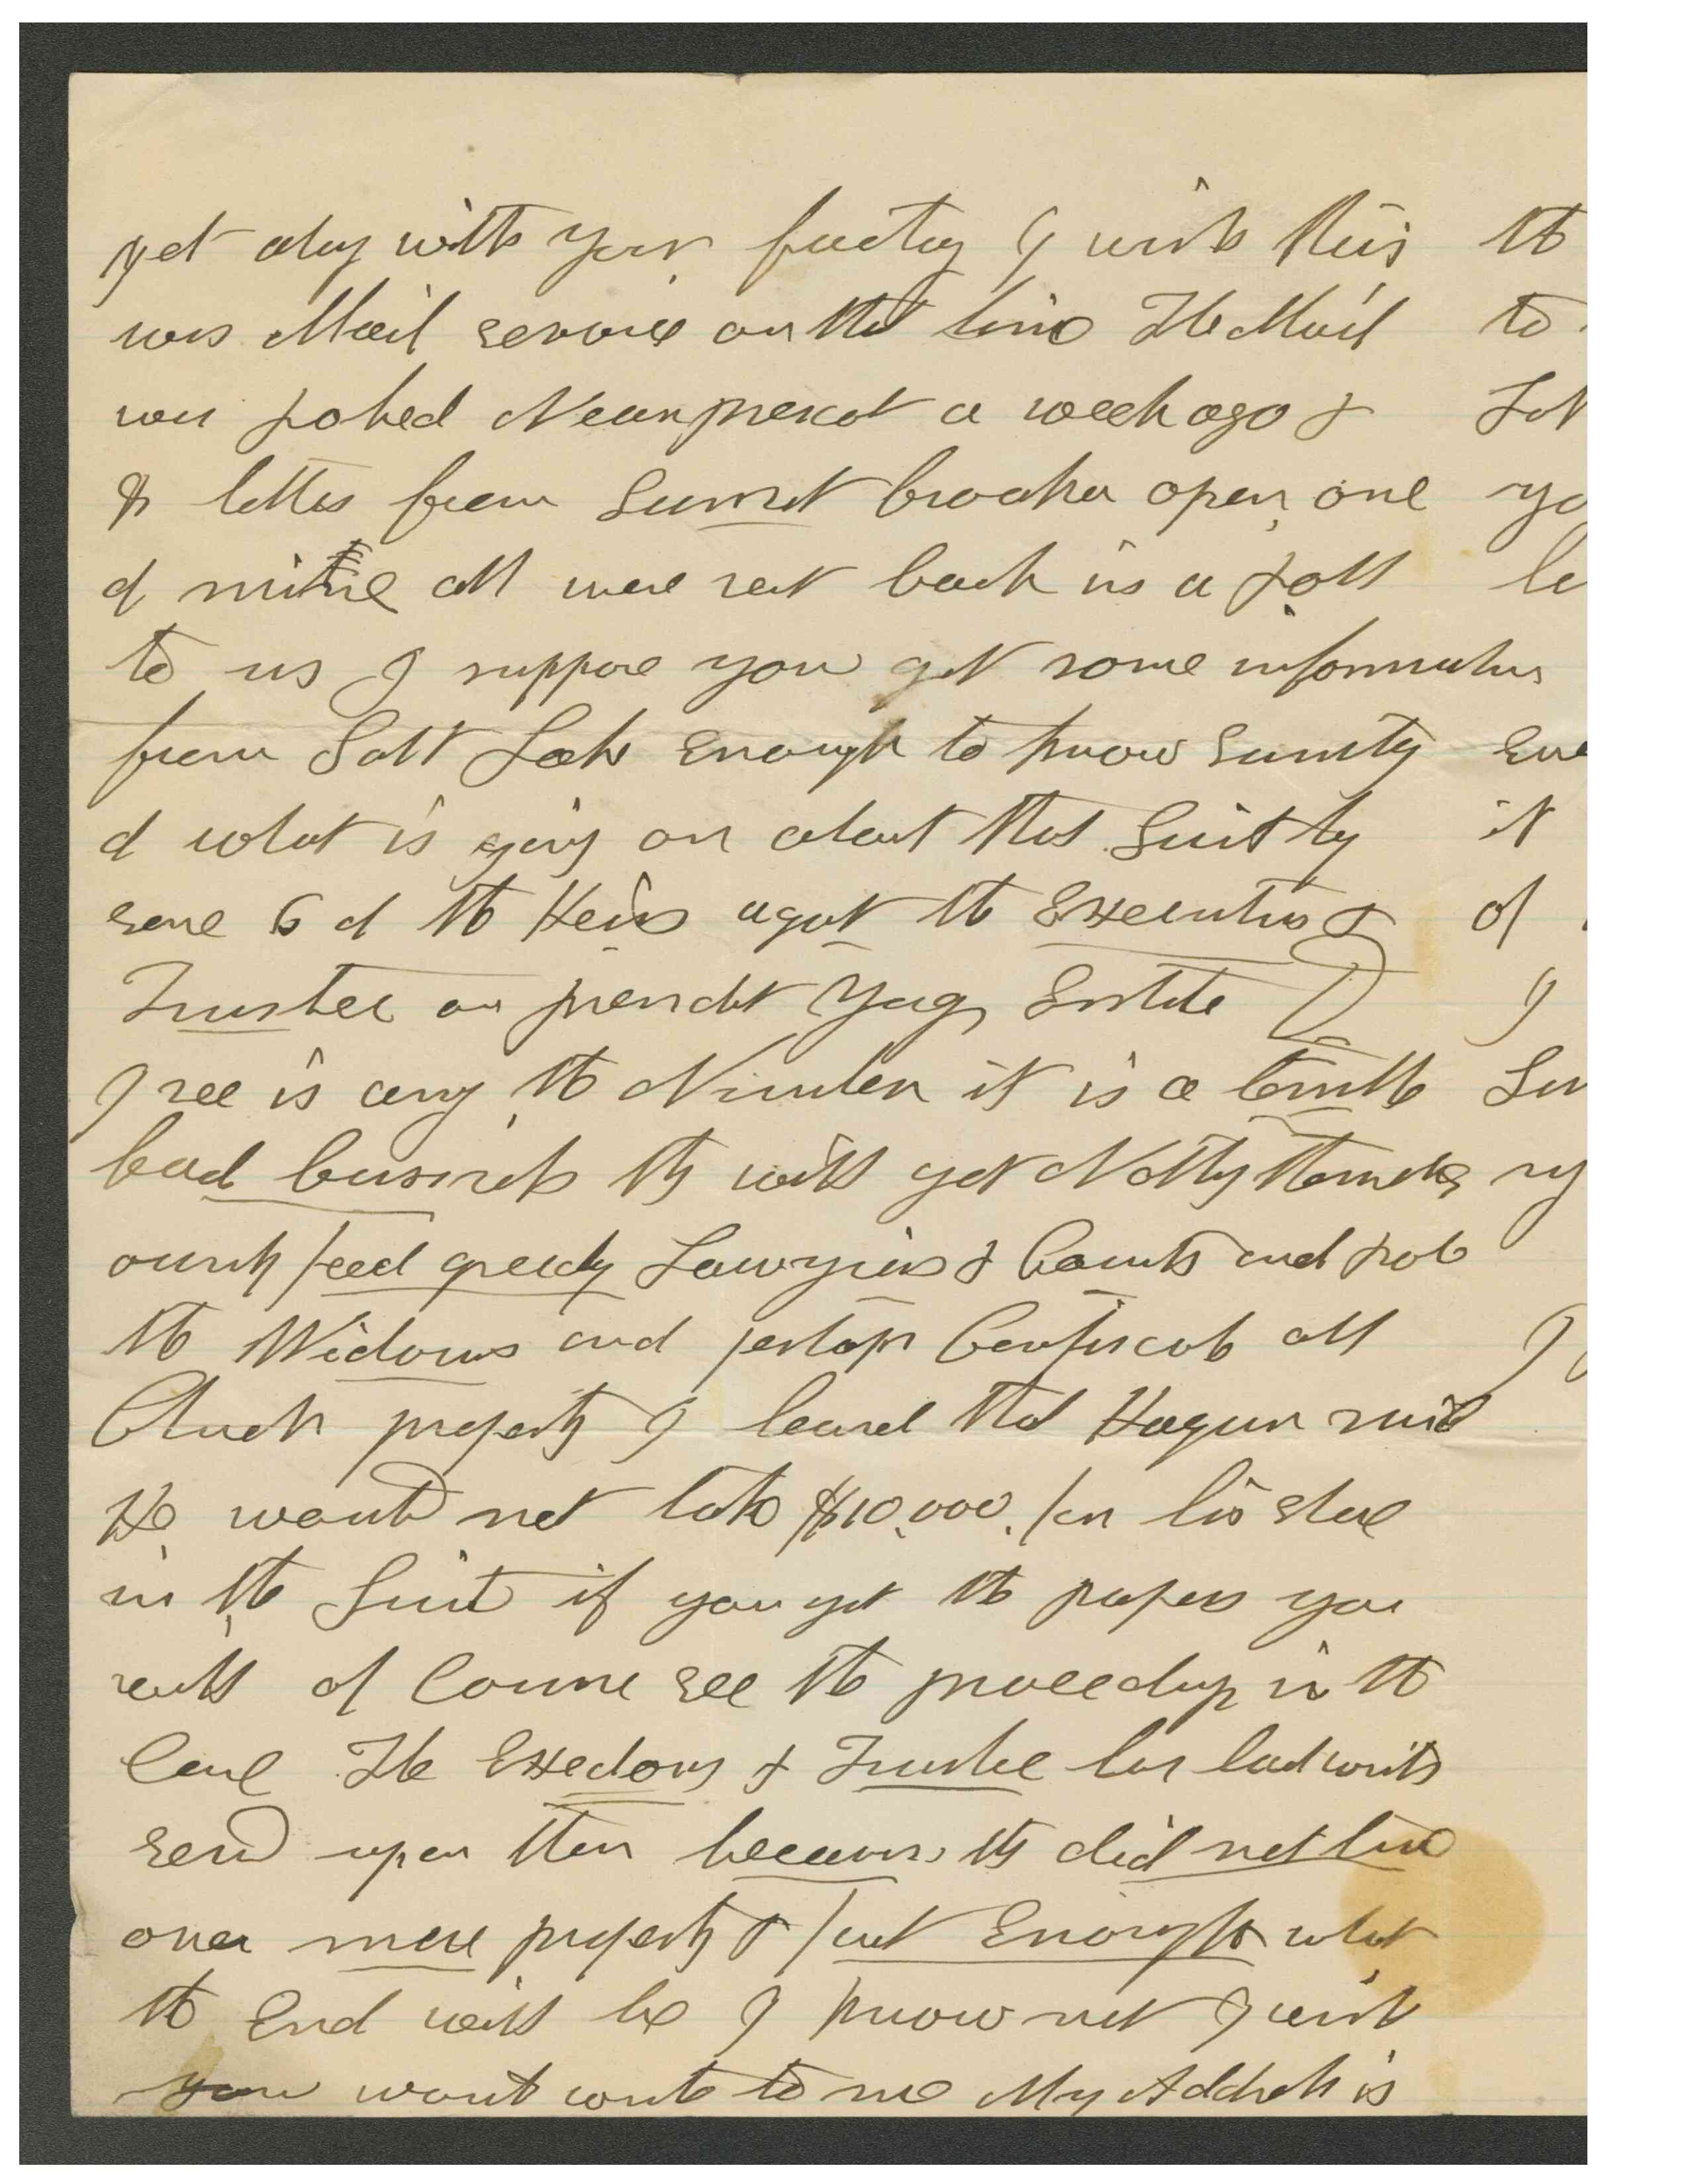 get along with your factory I wish this
was Mail service on that line The Mail
was robed Near prescot a week ago &
& letters from Sunset broaken open one
of mine all were sent back in a roll
to us I suppose you get some information
from Salt Lake Enough to know
of what is going on about that Suit by
some 6 of the Heirs against the Executors &
Trustee on president Youg Estate
I see is any the Number it is a terrible
bad business they will get Nothing themselves
only feed greedy Lawyiers & Courts and rob
the Widows and perhaps Confiscate all
Church property I learnd that Hagun said
He would not take $10,000. for his share
in the Suit if you get the papers you
will of Course see the proceedings in the
Case The & Trustee has had writs
servd upon them because they did not turn
over more property & Enough what
the End will be I know not I wish
you would write to me My Address is
the
to
Sal
yo
le
eve
it
of
I
Sun
my
I